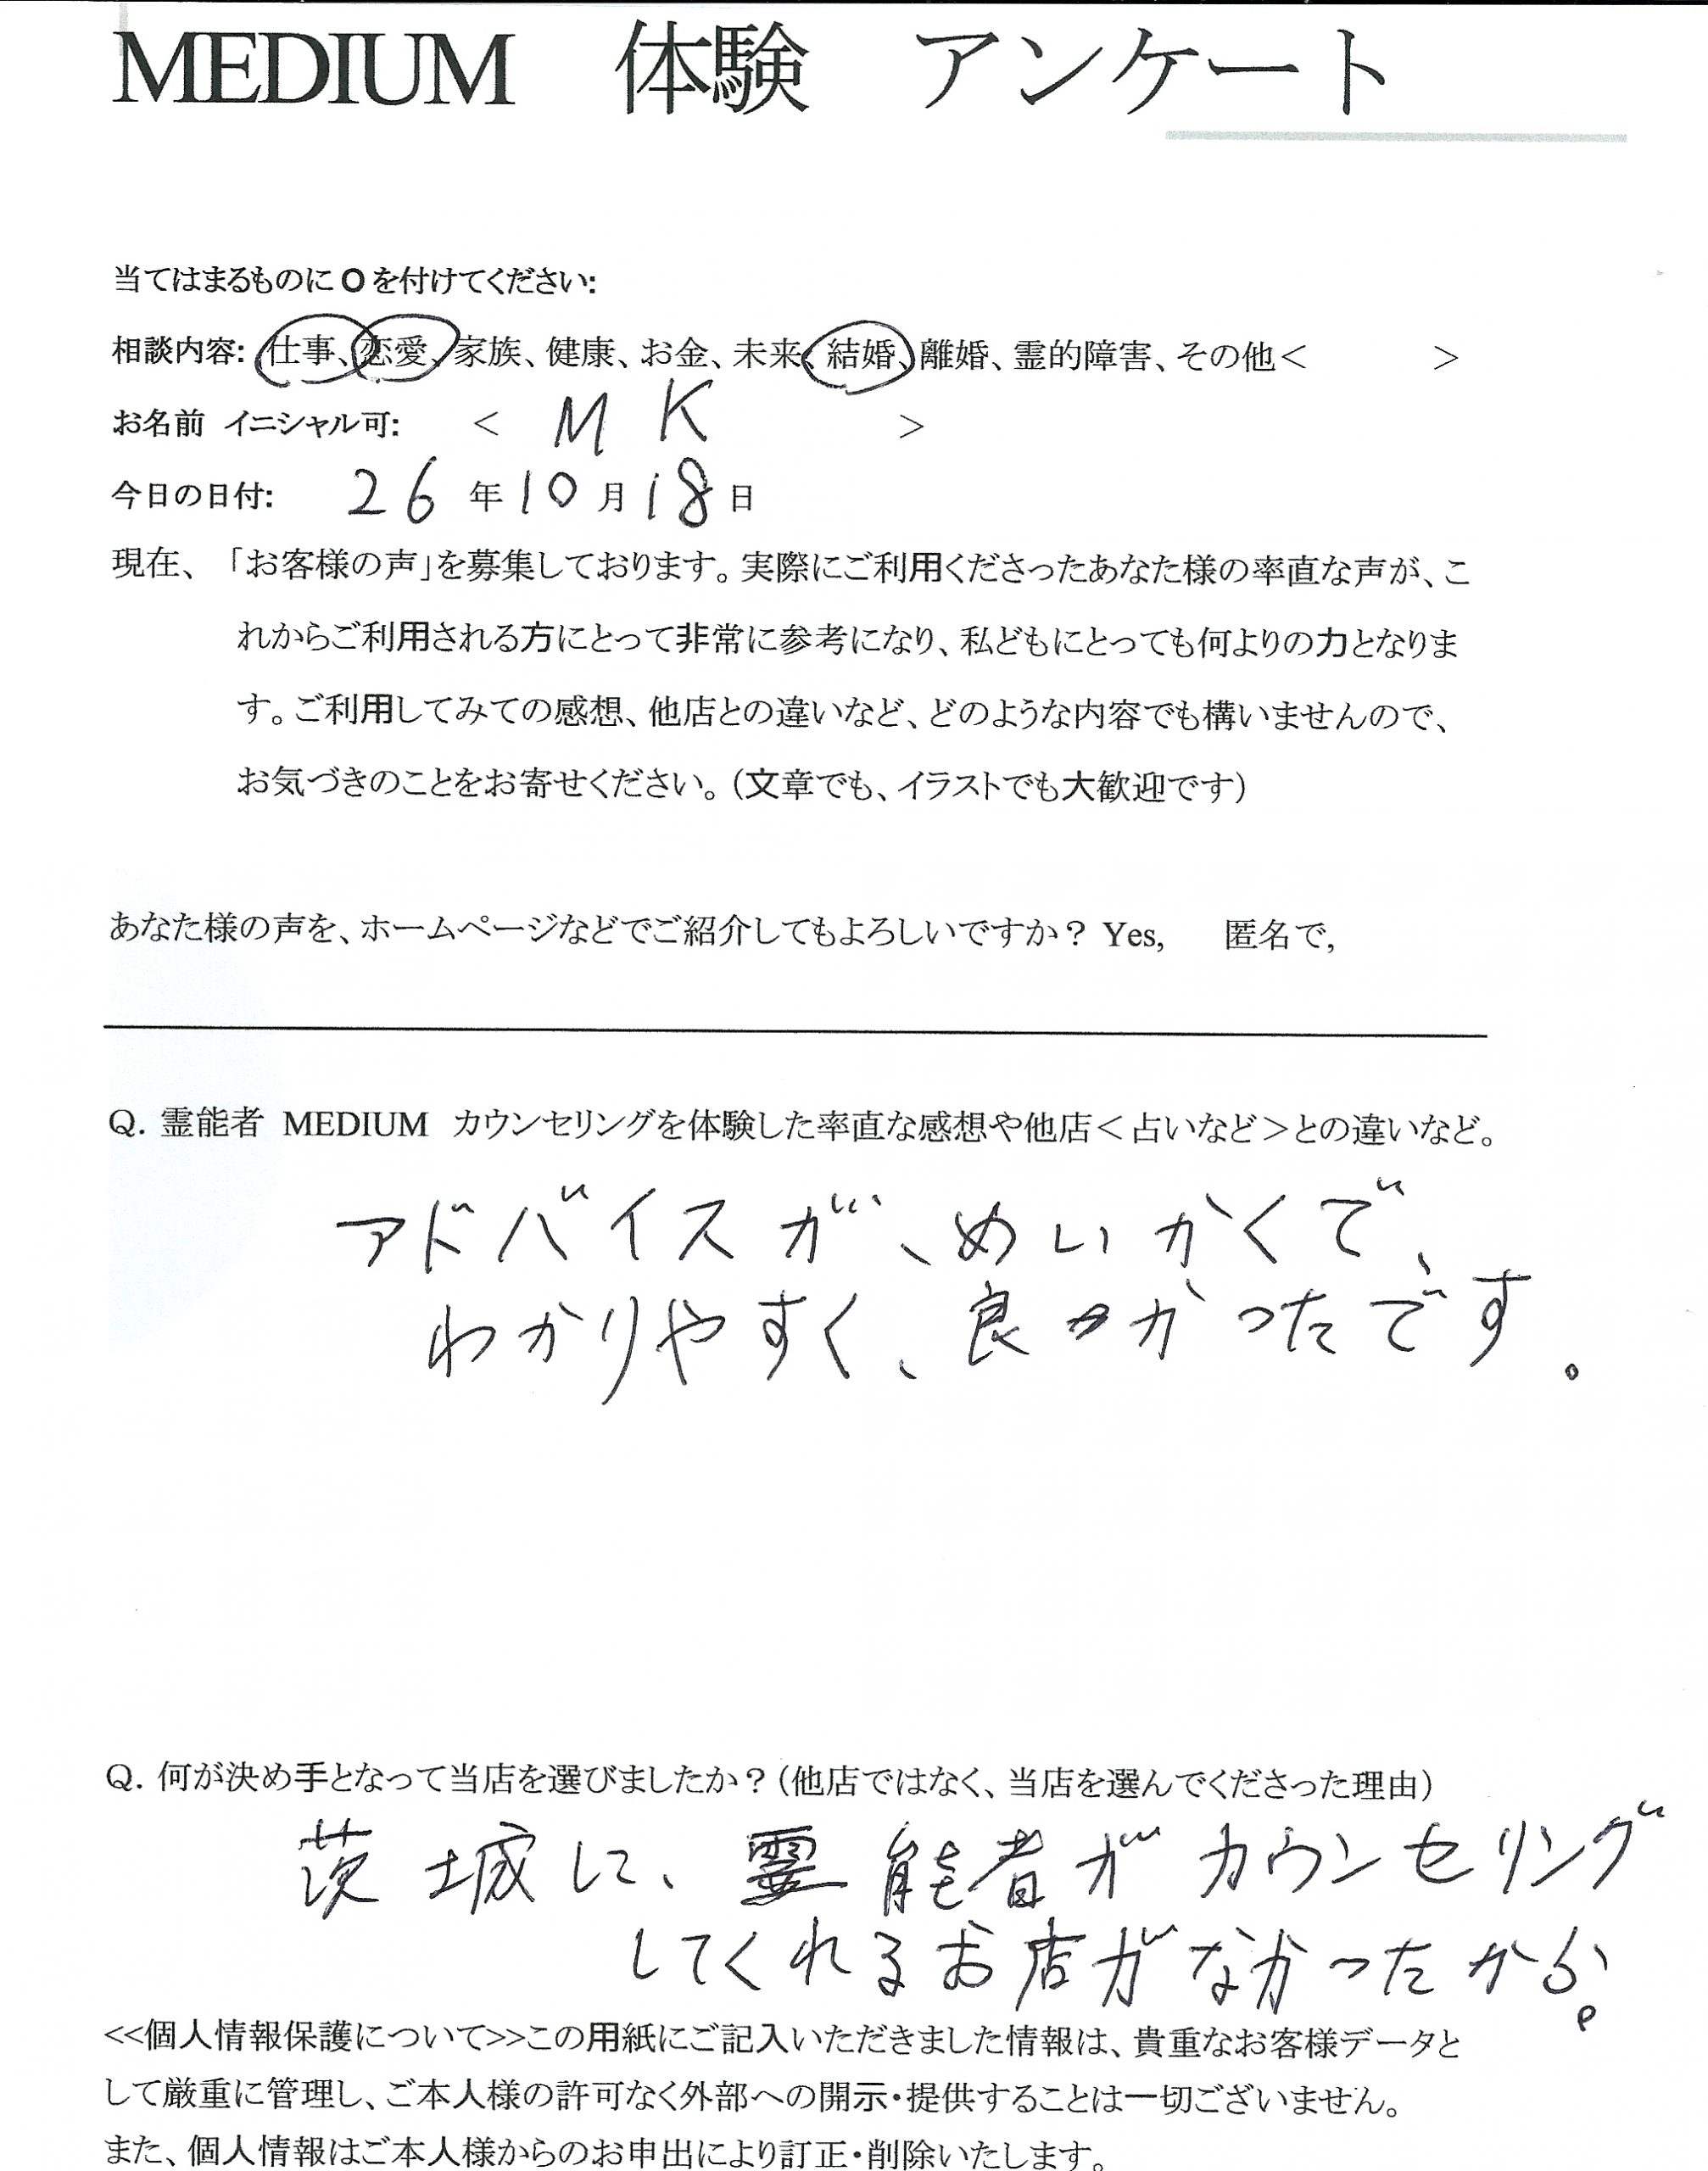 MEDIUM 体験 アンケート
当てはまるものに O を付けてください:
相談内容: 仕事、恋愛、家族、健康、お金、未来、結婚、離婚、霊的障害、その他＜ ＞
お名前 イニシャル可: ＜ M K ＞
今日の日付: 26 年 10 月 18 日
現在、「お客様の声」を募集しております。実際にご利用くださったあなた様の率直な声が、こ
れからご利用される方にとって非常に参考になり、私どもにとっても何よりの力となりま
す。ご利用してみての感想、他店との違いなど、どのような内容でも構いませんので、
お気づきのことをお寄せください。（文章でも、イラストでも大歓迎です）
あなた様の声を、ホームページなどでご紹介してもよろしいですか？ Yes, 匿名で,
Q. 霊能者 MEDIUM カウンセリングを体験した率直な感想や他店＜占いなど＞との違いなど。
アドバイスが、めいかくで、
わかりやすく、良かったです。
Q. 何が決め手となって当店を選びましたか？（他店ではなく、当店を選んでくださった理由）
茨城に、霊能者がカウンセリング
してくれるお店がなかったから。
<<個人情報保護について>>この用紙にご記入いただきました情報は、貴重なお客様データと
して厳重に管理し、ご本人様の許可なく外部への開示・提供することは一切ございません。
また、個人情報はご本人様からのお申出により訂正・削除いたします。